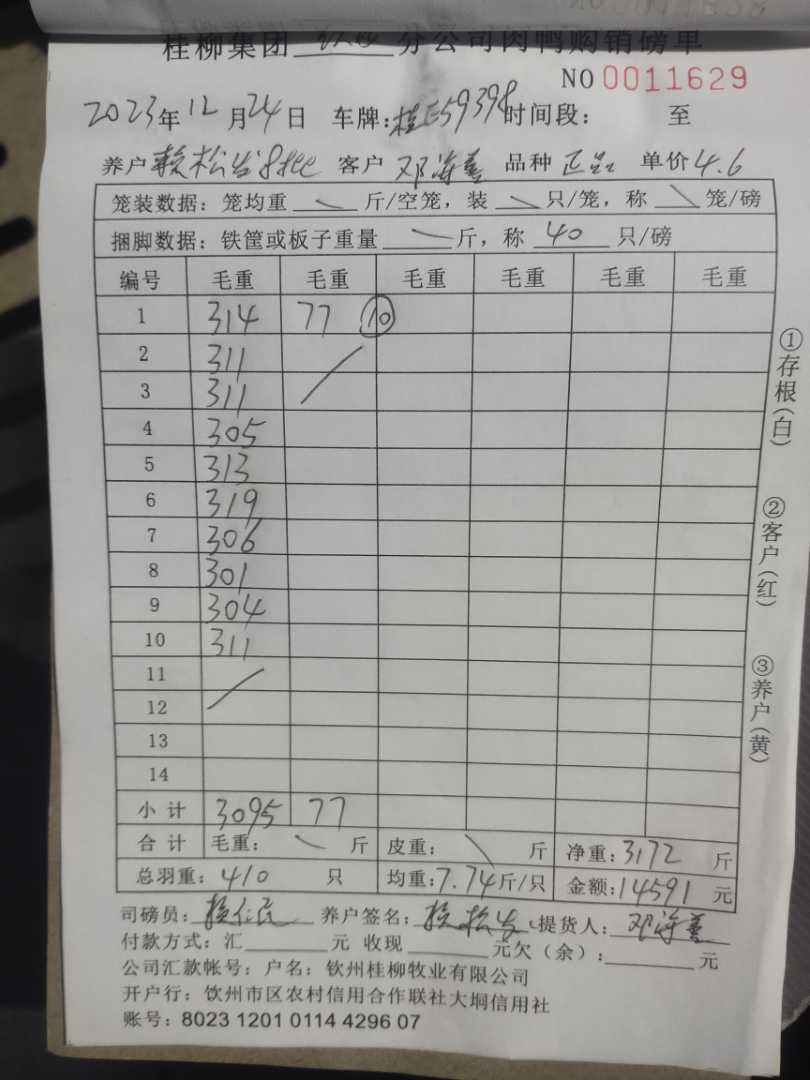 桂柳集团 分公司肉鸭购销磅单
NO 0011629
2023年12月24日 车牌:桂E59398时间段: 至
养户 赖松发8批 客户 邓海善 品种 正品 单价4.6
笼装数据: 笼均重 斤/空笼, 装 只/笼, 称 笼/磅
捆脚数据: 铁筐或板子重量 斤, 称 40 只/磅
编号 毛重 毛重 毛重 毛重 毛重 毛重
1 314 77 10
2 311
3 311
4 305
5 313
6 319
7 306
8 301
9 304
10 311
11
12
13
14
小计 3095 77
合计 毛重: 斤 皮重: 斤 净重:3172 斤
总羽重: 410 只 均重:7.74斤/只 金额:14591元
司磅员: 养户签名: 赖松发 提货人: 邓海善
付款方式: 汇 元 收现 元欠(余): 元
公司汇款帐号: 户名: 钦州桂柳牧业有限公司
开户行: 饮州市区农村信用合作联社大垌信用社
账号: 8023 1201 0114 4296 07
①存根(白)
②客户(红)
③养户(黄)